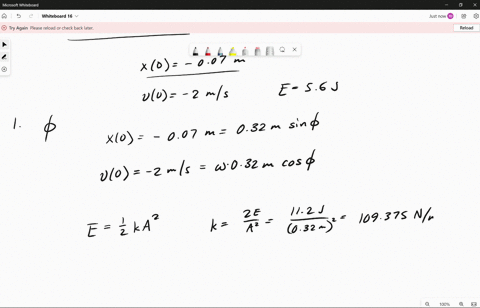 Microsoft Whiteboard
Whiteboard 16
Just now
Try Again Please reload or check back later. Reload
x(0) = - 0.07 m
v(0) = -2 m/s E = 5.6 J
1. ϕ
x(0) = - 0.07 m = 0.32 m sinϕ
v(0) = -2 m/s = ω·0.32 m cosϕ
E = 1/2 kA² k = 2E/A² = 11.2 J/(0.32 m)² = 109.375 N/m
100%